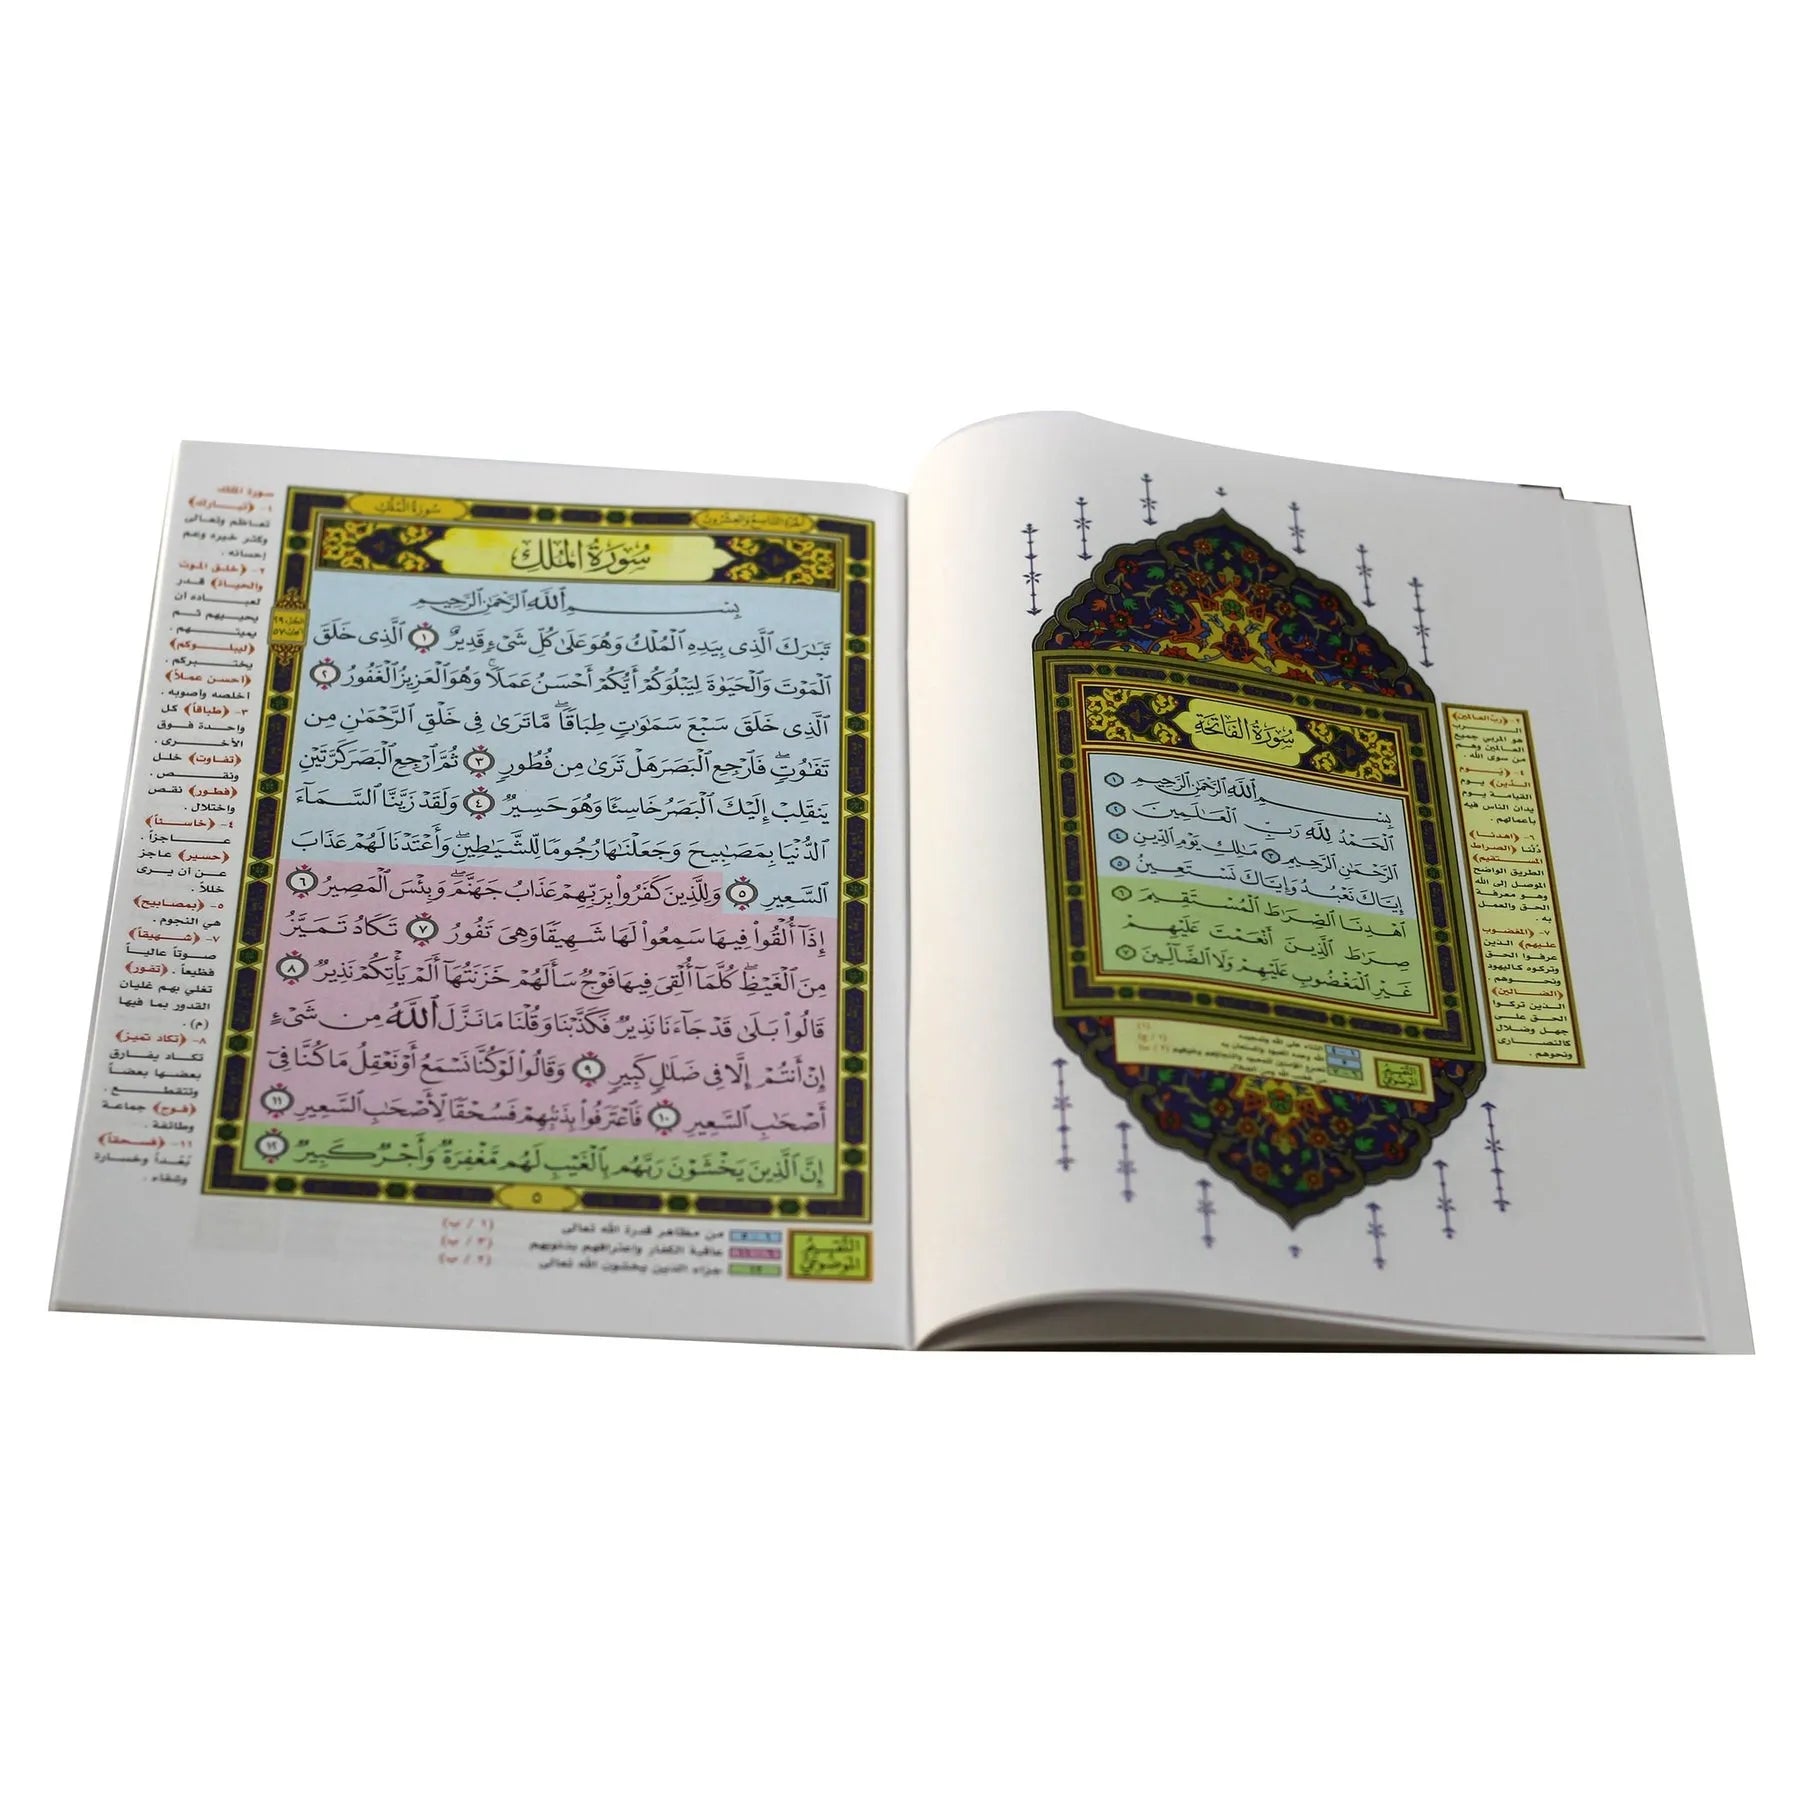 سورة الفاتحة
بِسْمِ ٱللَّهِ ٱلرَّحْمَٰنِ ٱلرَّحِيمِ ١
ٱلْحَمْدُ لِلَّهِ رَبِّ ٱلْعَٰلَمِينَ ٢
ٱلرَّحْمَٰنِ ٱلرَّحِيمِ ٣ مَٰلِكِ يَوْمِ ٱلدِّينِ ٤
إِيَّاكَ نَعْبُدُ وَإِيَّاكَ نَسْتَعِينُ ٥
ٱهْدِنَا ٱلصِّرَٰطَ ٱلْمُسْتَقِيمَ ٦
صِرَٰطَ ٱلَّذِينَ أَنْعَمْتَ عَلَيْهِمْ
غَيْرِ ٱلْمَغْضُوبِ عَلَيْهِمْ وَلَا ٱلضَّآلِّينَ ٧
٢- ﴿رب العالمين﴾
الرب
هو المربي جميع
العالمين وهم
من سوى الله .
٤- ﴿يوم
الدين﴾ يوم
القيامة يوم
يدان الناس فيه
بأعمالهم .
٦- ﴿اهدنا﴾
دُلّنا ﴿الصراط
المستقيم﴾
الطريق الواضح
الموصل إلى الله
وهو معرفة
الحق والعمل
به .
٧- ﴿المغضوب
عليهم﴾ الذين
عرفوا الحق
وتركوه كاليهود
ونحوهم .
﴿الضالين﴾
الذين تركوا
الحق على
جهل وضلال
كالنصارى
ونحوهم .
التقسيم
الموضوعي
الجزء التاسع والعشرون
سورة الملك
سُورَةُ المُلْكِ
بِسْمِ ٱللَّهِ ٱلرَّحْمَٰنِ ٱلرَّحِيمِ
تَبَٰرَكَ ٱلَّذِى بِيَدِهِ ٱلْمُلْكُ وَهُوَ عَلَىٰ كُلِّ شَىْءٍ قَدِيرٌ ١ ٱلَّذِى خَلَقَ
ٱلْمَوْتَ وَٱلْحَيَوٰةَ لِيَبْلُوَكُمْ أَيُّكُمْ أَحْسَنُ عَمَلًا ۚ وَهُوَ ٱلْعَزِيزُ ٱلْغَفُورُ ٢
ٱلَّذِى خَلَقَ سَبْعَ سَمَٰوَٰتٍ طِبَاقًا ۖ مَّا تَرَىٰ فِى خَلْقِ ٱلرَّحْمَٰنِ مِن
تَفَٰوُتٍ ۖ فَٱرْجِعِ ٱلْبَصَرَ هَلْ تَرَىٰ مِن فُطُورٍ ٣ ثُمَّ ٱرْجِعِ ٱلْبَصَرَ كَرَّتَيْنِ
يَنقَلِبْ إِلَيْكَ ٱلْبَصَرُ خَاسِئًا وَهُوَ حَسِيرٌ ٤ وَلَقَدْ زَيَّنَّا ٱلسَّمَآءَ
ٱلدُّنْيَا بِمَصَٰبِيحَ وَجَعَلْنَٰهَا رُجُومًا لِّلشَّيَٰطِينِ ۖ وَأَعْتَدْنَا لَهُمْ عَذَابَ
ٱلسَّعِيرِ ٥ وَلِلَّذِينَ كَفَرُوا۟ بِرَبِّهِمْ عَذَابُ جَهَنَّمَ ۖ وَبِئْسَ ٱلْمَصِيرُ ٦
إِذَآ أُلْقُوا۟ فِيهَا سَمِعُوا۟ لَهَا شَهِيقًا وَهِىَ تَفُورُ ٧ تَكَادُ تَمَيَّزُ
مِنَ ٱلْغَيْظِ ۖ كُلَّمَآ أُلْقِىَ فِيهَا فَوْجٌ سَأَلَهُمْ خَزَنَتُهَآ أَلَمْ يَأْتِكُمْ نَذِيرٌ ٨
قَالُوا۟ بَلَىٰ قَدْ جَآءَنَا نَذِيرٌ فَكَذَّبْنَا وَقُلْنَا مَا نَزَّلَ ٱللَّهُ مِن شَىْءٍ
إِنْ أَنتُمْ إِلَّا فِى ضَلَٰلٍ كَبِيرٍ ٩ وَقَالُوا۟ لَوْ كُنَّا نَسْمَعُ أَوْ نَعْقِلُ مَا كُنَّا فِىٓ
أَصْحَٰبِ ٱلسَّعِيرِ ١٠ فَٱعْتَرَفُوا۟ بِذَنۢبِهِمْ فَسُحْقًا لِّأَصْحَٰبِ ٱلسَّعِيرِ ١١
إِنَّ ٱلَّذِينَ يَخْشَوْنَ رَبَّهُم بِٱلْغَيْبِ لَهُم مَّغْفِرَةٌ وَأَجْرٌ كَبِيرٌ ١٢
٥
سورة الملك
١- ﴿تبارك﴾
تعاظم وتعالى
وكثر خيره وعم
إحسانه .
٢- ﴿خلق الموت
والحياة﴾ قدر
لعباده أن
يحييهم ثم
يميتهم .
﴿ليبلوكم﴾
يختبركم .
﴿أحسن عملاً﴾
أخلصه وأصوبه .
٣- ﴿طباقاً﴾ كل
واحدة فوق
الأخرى .
﴿تفاوت﴾ خلل
ونقص .
﴿فطور﴾ نقص
واختلال .
٤- ﴿خاسئاً﴾
عاجزاً .
﴿حسير﴾ عاجز
عن أن يرى
خللاً .
٥- ﴿بمصابيح﴾
هي النجوم .
٧- ﴿شهيقاً﴾
صوتاً عالياً
فظيعاً . ﴿تفور﴾
تغلي بهم غليان
القدور بما فيها
(م) .
٨- ﴿تكاد تميز﴾
تكاد يفارق
بعضها بعضاً
وتتقطع .
﴿فوج﴾ جماعة
وطائفة .
١١- ﴿فسحقاً﴾
بُعْداً وخسارة
وشقاء .
التقسيم
الموضوعي
من مظاهر قدرة الله تعالى
عاقبة الكفار واعترافهم بذنوبهم
جزاء الذين يخشون الله تعالى